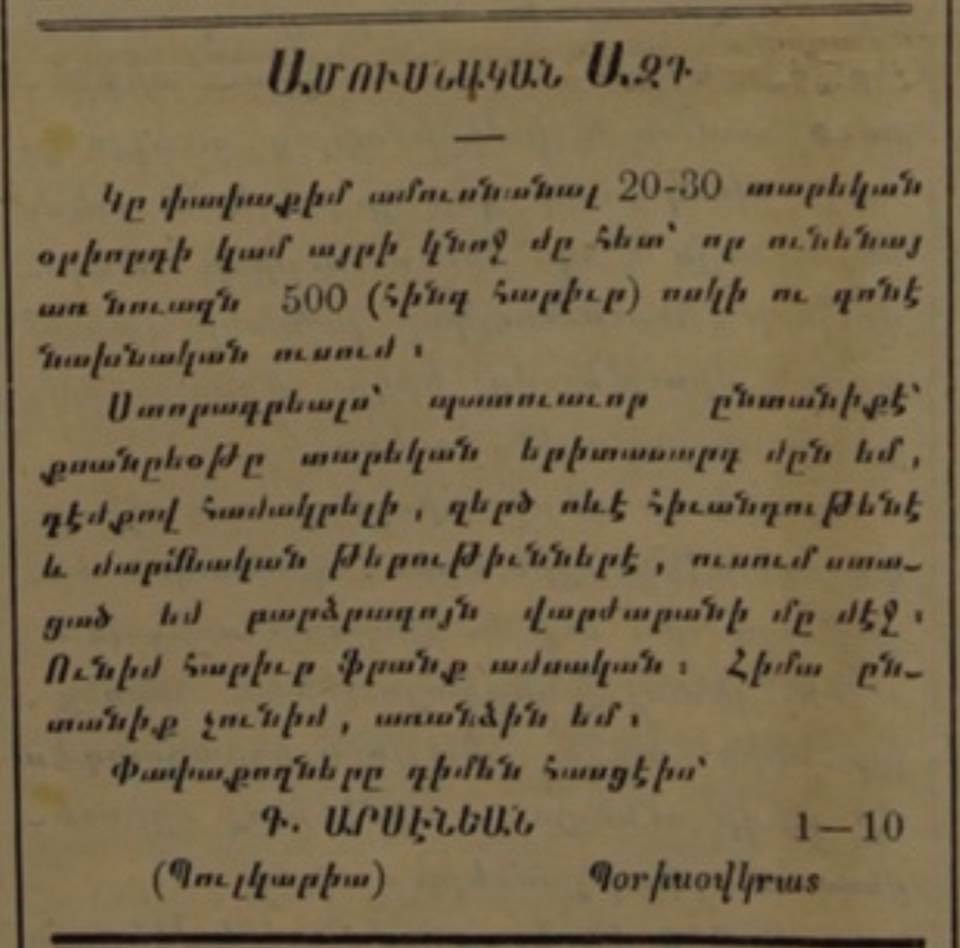 ԱՄՈՒՍՆԱԿԱՆ ԱԶԴ
Կը փափաքիմ ամուսնանալ 20-30 տարեկան
օրիորդի կամ այրի կնոջ մը հետ՝ որ ունենայ
առ նուազն 500 (հինգ հարիւր) ոսկի ու գոնէ
նախնական ուսում ։
Ստորագրեալս՝ պատուաւոր ընտանիքէ՝
քսանըեօթը տարեկան երիտասարդ մըն եմ,
դէմքով համակրելի, զերծ ոևէ հիւանդութենէ
և մարմնական թերութիւններէ, ուսում ստա-
ցած եմ բարձրագոյն վարժարանի մը մէջ ։
Ունիմ հարիւր ֆրանք ամսական ։ Հիմա ըն-
տանիք չունիմ, առանձին եմ ։
Փափաքողները դիմեն հասցէիս՝
Գ. ԱՐՍԷՆԵԱՆ 1—10
(Պուլկարիա) Պօրիսովկրատ